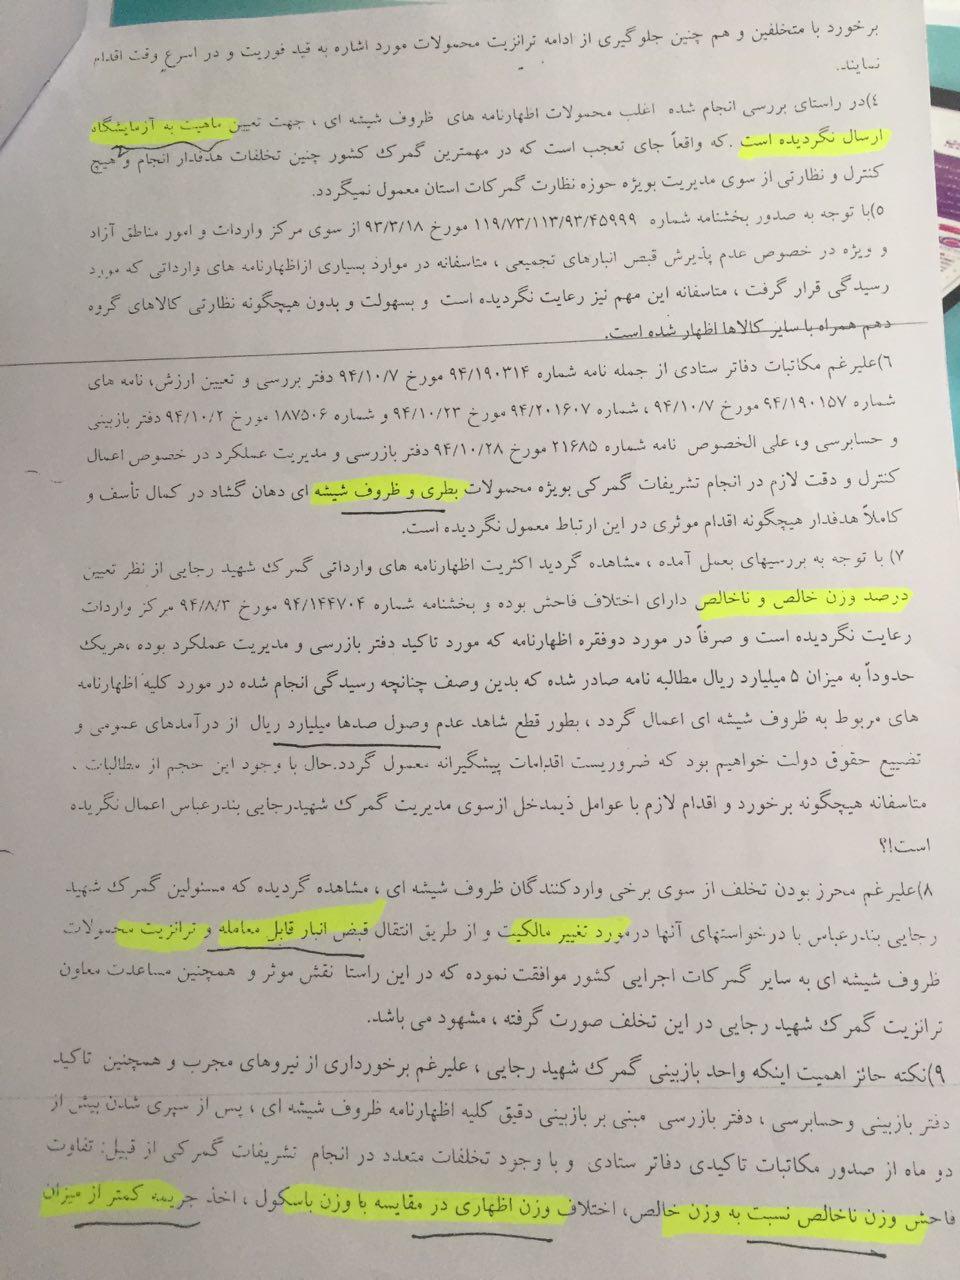 برخورد با متخلفین و هم چنین جلوگیری از ادامه ترانزیت محصولات مورد اشاره به قید فوریت و در اسرع وقت اقدام
نمایند.
٤)در راستای بررسی انجام شده اغلب محصولات اظهارنامه های ظروف شیشه ای ، جهت تعیین ماهیت به آزمایشگاه
ارسال نگردیده است .که واقعاً جای تعجب است که در مهمترین گمرک کشور چنین تخلفات هدفدار انجام و هیچ
کنترل و نظارتی از سوی مدیریت بویژه حوزه نظارت گمرکات استان معمول نمیگردد.
٥)با توجه به صدور بخشنامه شماره ۱۱۹/۷۳/۱۱۳/۹۳/٤٥۹۹۹ مورخ ۹۳/۳/۱۸ از سوی مرکز واردات و امور مناطق آزاد
و ویژه در خصوص عدم پذیرش قبض انبارهای تجمیعی ، متاسفانه در موارد بسیاری ازاظهارنامه های وارداتی که مورد
رسیدگی قرار گرفت ، متاسفانه این مهم نیز رعایت نگردیده است و بسهولت و بدون هیچگونه نظارتی کالاهای گروه
دهم همراه با سایر کالاها اظهار شده است.
٦)علیرغم مکاتبات دفاتر ستادی از جمله نامه شماره ۹٤/۱۹۰۳۱٤ مورخ ۹٤/۱۰/۷ دفتر بررسی و تعیین ارزش، نامه های
شماره ۹٤/۱۹۰۱٥۷ مورخ ۹٤/۱۰/۷ ، شماره ۹٤/۲۰۱٦۰۷ مورخ ۹٤/۱۰/۲۳ و شماره ۱۸۷٥۰٦ مورخ ۹٤/۱۰/۲ دفتر بازبینی
و حسابرسی و، علی الخصوص نامه شماره ۲۱٦۸٥ مورخ ۹٤/۱۰/۲۸ دفتر بازرسی و مدیریت عملکرد در خصوص اعمال
کنترل و دقت لازم در انجام تشریفات گمرکی بویژه محصولات بطری و ظروف شیشه ای دهان گشاد در کمال تأسف و
کاملاً هدفدار هیچگونه اقدام موثری در این ارتباط معمول نگردیده است.
۷) با توجه به بررسیهای بعمل آمده ، مشاهده گردید اکثریت اظهارنامه های وارداتی گمرک شهید رجایی از نظر تعیین
درصد وزن خالص و ناخالص دارای اختلاف فاحش بوده و بخشنامه شماره ۹٤/۱٤٤۷۰٤ مورخ ۹٤/۸/۳ مرکز واردات
رعایت نگردیده است و صرفاً در مورد دوفقره اظهارنامه که مورد تاکید دفتر بازرسی و مدیریت عملکرد بوده ،هریک
حدوداً به میزان ٥ میلیارد ریال مطالبه نامه صادر شده که بدین وصف چنانچه رسیدگی انجام شده در مورد کلیه اظهارنامه
های مربوط به ظروف شیشه ای اعمال گردد ، بطور قطع شاهد عدم وصول صدها میلیارد ریال از درآمدهای عمومی و
تضییع حقوق دولت خواهیم بود که ضروریست اقدامات پیشگیرانه معمول گردد.حال با وجود این حجم از مطالبات ،
متاسفانه هیچگونه برخورد و اقدام لازم با عوامل ذیمدخل ازسوی مدیریت گمرک شهیدرجایی بندرعباس اعمال نگریده
است!؟
۸)علیرغم محرز بودن تخلف از سوی برخی واردکنندگان ظروف شیشه ای ، مشاهده گردیده که مسئولین گمرک شهید
رجایی بندرعباس با درخواستهای آنها درمورد تغییر مالکیت و از طریق انتقال قبض انبار قابل معامله و ترانزیت محصولات
ظروف شیشه ای به سایر گمرکات اجرایی کشور موافقت نموده که در این راستا نقش موثر و همچنین مساعدت معاون
ترانزیت گمرک شهید رجایی در این تخلف صورت گرفته ، مشهود می باشد.
۹)نکته حائز اهمیت اینکه واحد بازبینی گمرک شهید رجایی ، علیرغم برخورداری از نیروهای مجرب و همچنین تاکید
دفتر بازبینی وحسابرسی ، دفتر بازرسی مبنی بر بازبینی دقیق کلیه اظهارنامه ظروف شیشه ای ، پس از سپری شدن بیش از
دو ماه از صدور مکاتبات تاکیدی دفاتر ستادی و با وجود تخلفات متعدد در انجام تشریفات گمرکی از قبیل: تفاوت
فاحش وزن ناخالص نسبت به وزن خالص، اختلاف وزن اظهاری در مقایسه با وزن باسکول ، اخذ جریمه کمتر از میزان